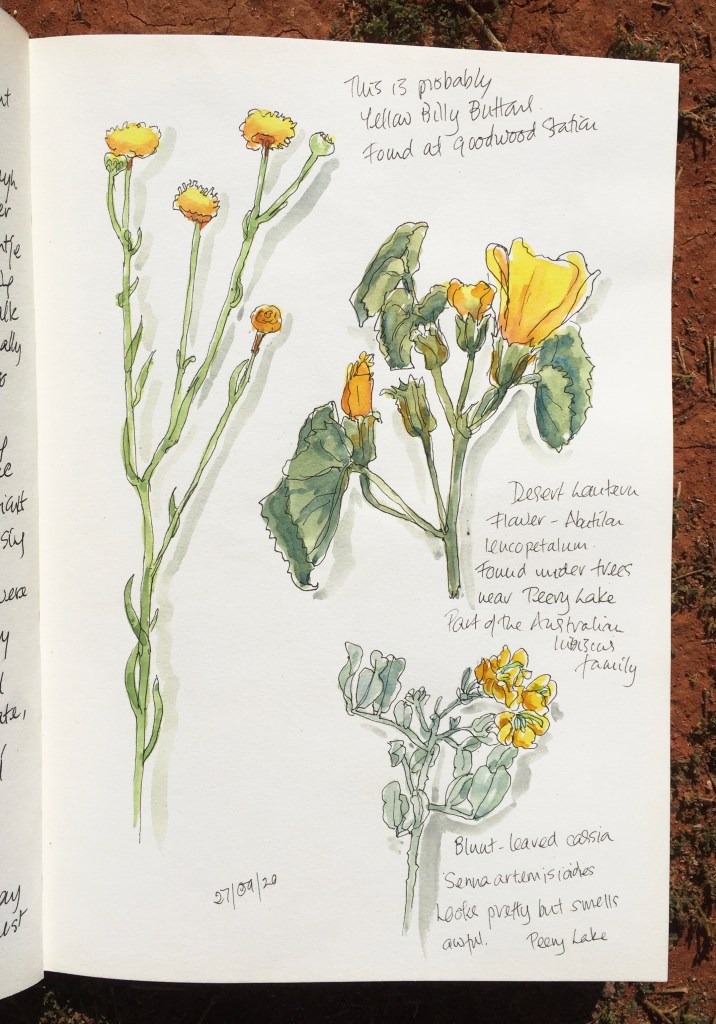 This is probably
Yellow Billy Buttons.
Found at Goodwood Station
Desert Lantern
Flower - Abutilon
leucopetalum.
Found under trees
near Peery Lake
Part of the Australian
hibiscus
family
Blunt-leaved cassia
Senna artemisioides
Looks pretty but smells
awful. Peery Lake
27/09/20